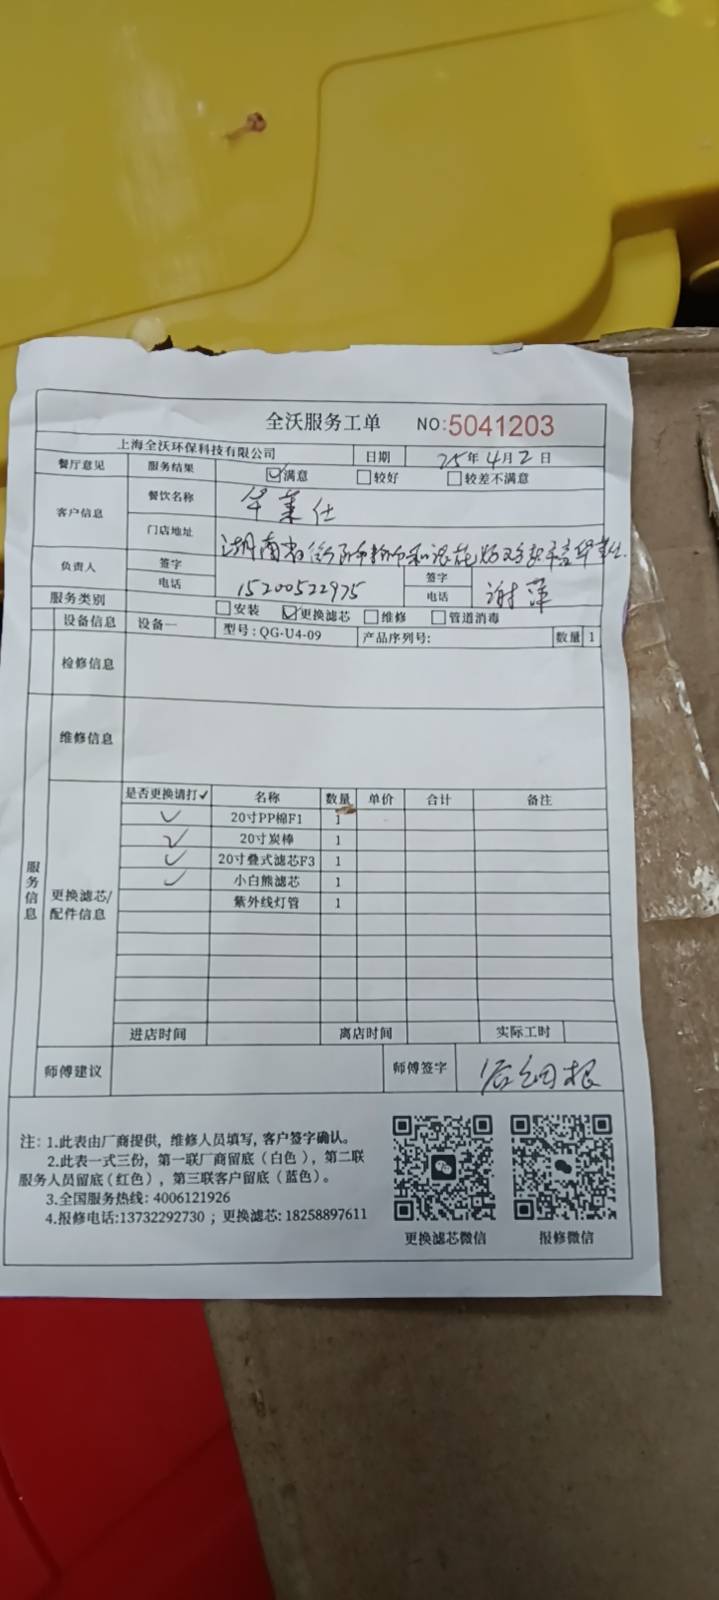 全沃服务工单 NO:5041203
上海全沃环保科技有限公司 日期 25年4月2日
餐厅意见 服务结果 ☑满意 □较好 □较差不满意
客户信息 餐饮名称 华莱仕
门店地址 湖南省
负责人 签字 签字
电话 15200522975 电话 谢萍
服务类别 □安装 ☑更换滤芯 □维修 □管道消毒
设备信息 设备一 型号:QG-U4-09 产品序列号: 数量 1
检修信息
维修信息
服务信息
更换滤芯/配件信息
是否更换请打✓ 名称 数量 单价 合计 备注
✓ 20寸PP棉F1 1
✓ 20寸炭棒 1
✓ 20寸叠式滤芯F3 1
✓ 小白熊滤芯 1
紫外线灯管 1
进店时间 离店时间 实际工时
师傅建议 师傅签字
注: 1.此表由厂商提供, 维修人员填写, 客户签字确认。
2.此表一式三份, 第一联厂商留底(白色), 第二联
服务人员留底(红色), 第三联客户留底(蓝色)。
3.全国服务热线: 4006121926
4.报修电话:13732292730 ; 更换滤芯: 18258897611
更换滤芯微信 报修微信